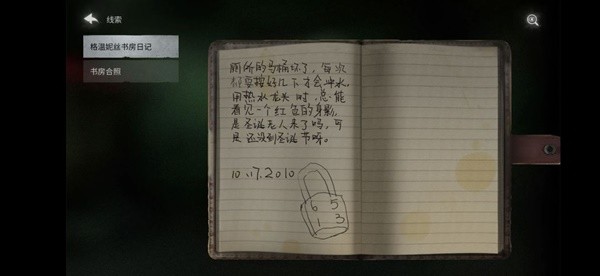 线索
格温妮丝书房日记
书房合照
厕所的马桶坏了，每次
都要按好几下才会冲水。
用热水龙头时，总能
看见一个红色的身影，
是圣诞老人来了吗，可
是还没到圣诞节呀。
10.17.2010
6 5
1 3